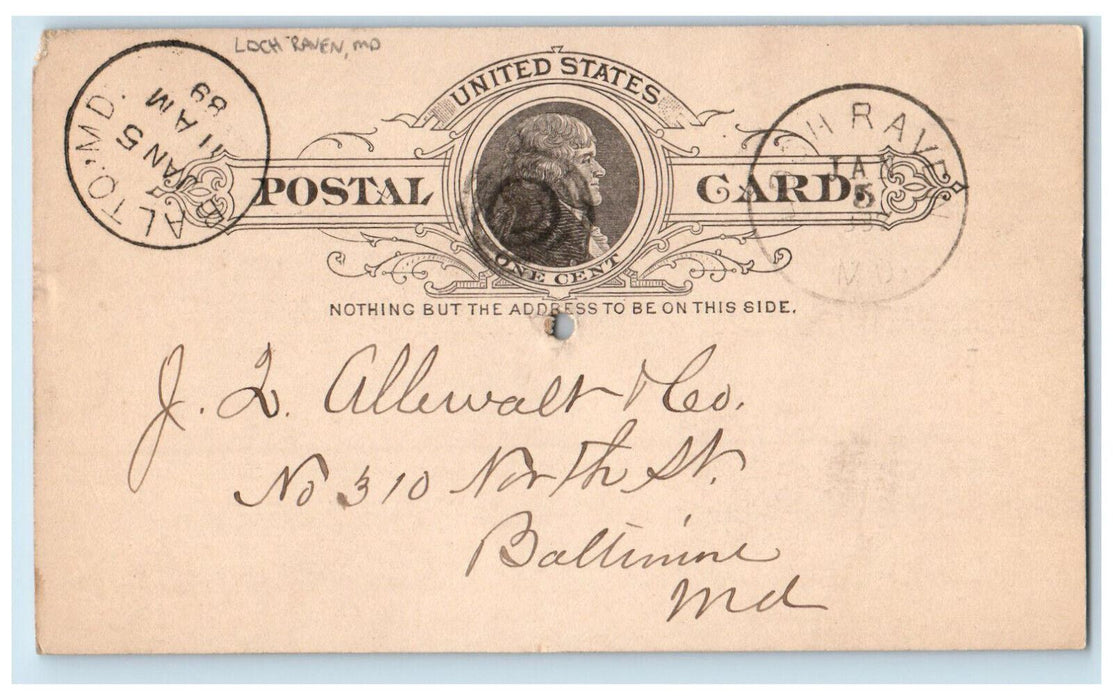 LOCH RAVEN, MD
BALTO. MD.
JAN 5
11 AM
89
UNITED STATES
POSTAL CARD.
ONE CENT
H RAVEN
JA
5
MD
NOTHING BUT THE ADDRESS TO BE ON THIS SIDE.
J. Q. Allewalt & Co.
No 310 North St.
Baltimore
Md